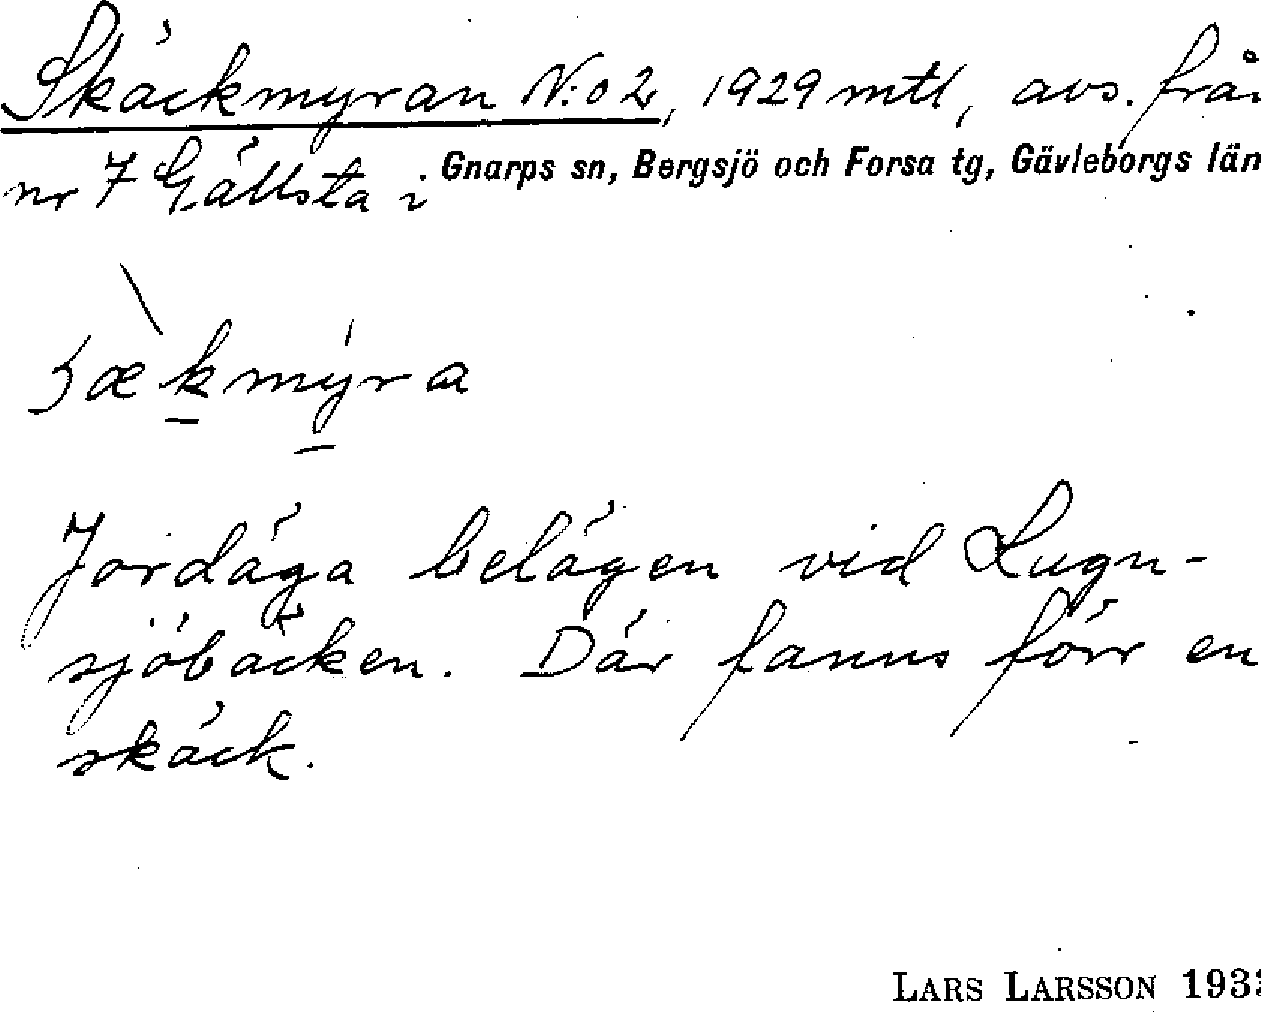 Skäckmyran N:o 2, 1929 mtl, avs. från
nr 7 Gällsta i Gnarps sn, Bergsjö och Forsa tg, Gävleborgs län
ʃækmyra
Jordäga belägen vid Lugn-
sjöbäcken. Där fanns förr en
skäck.
LARS LARSSON